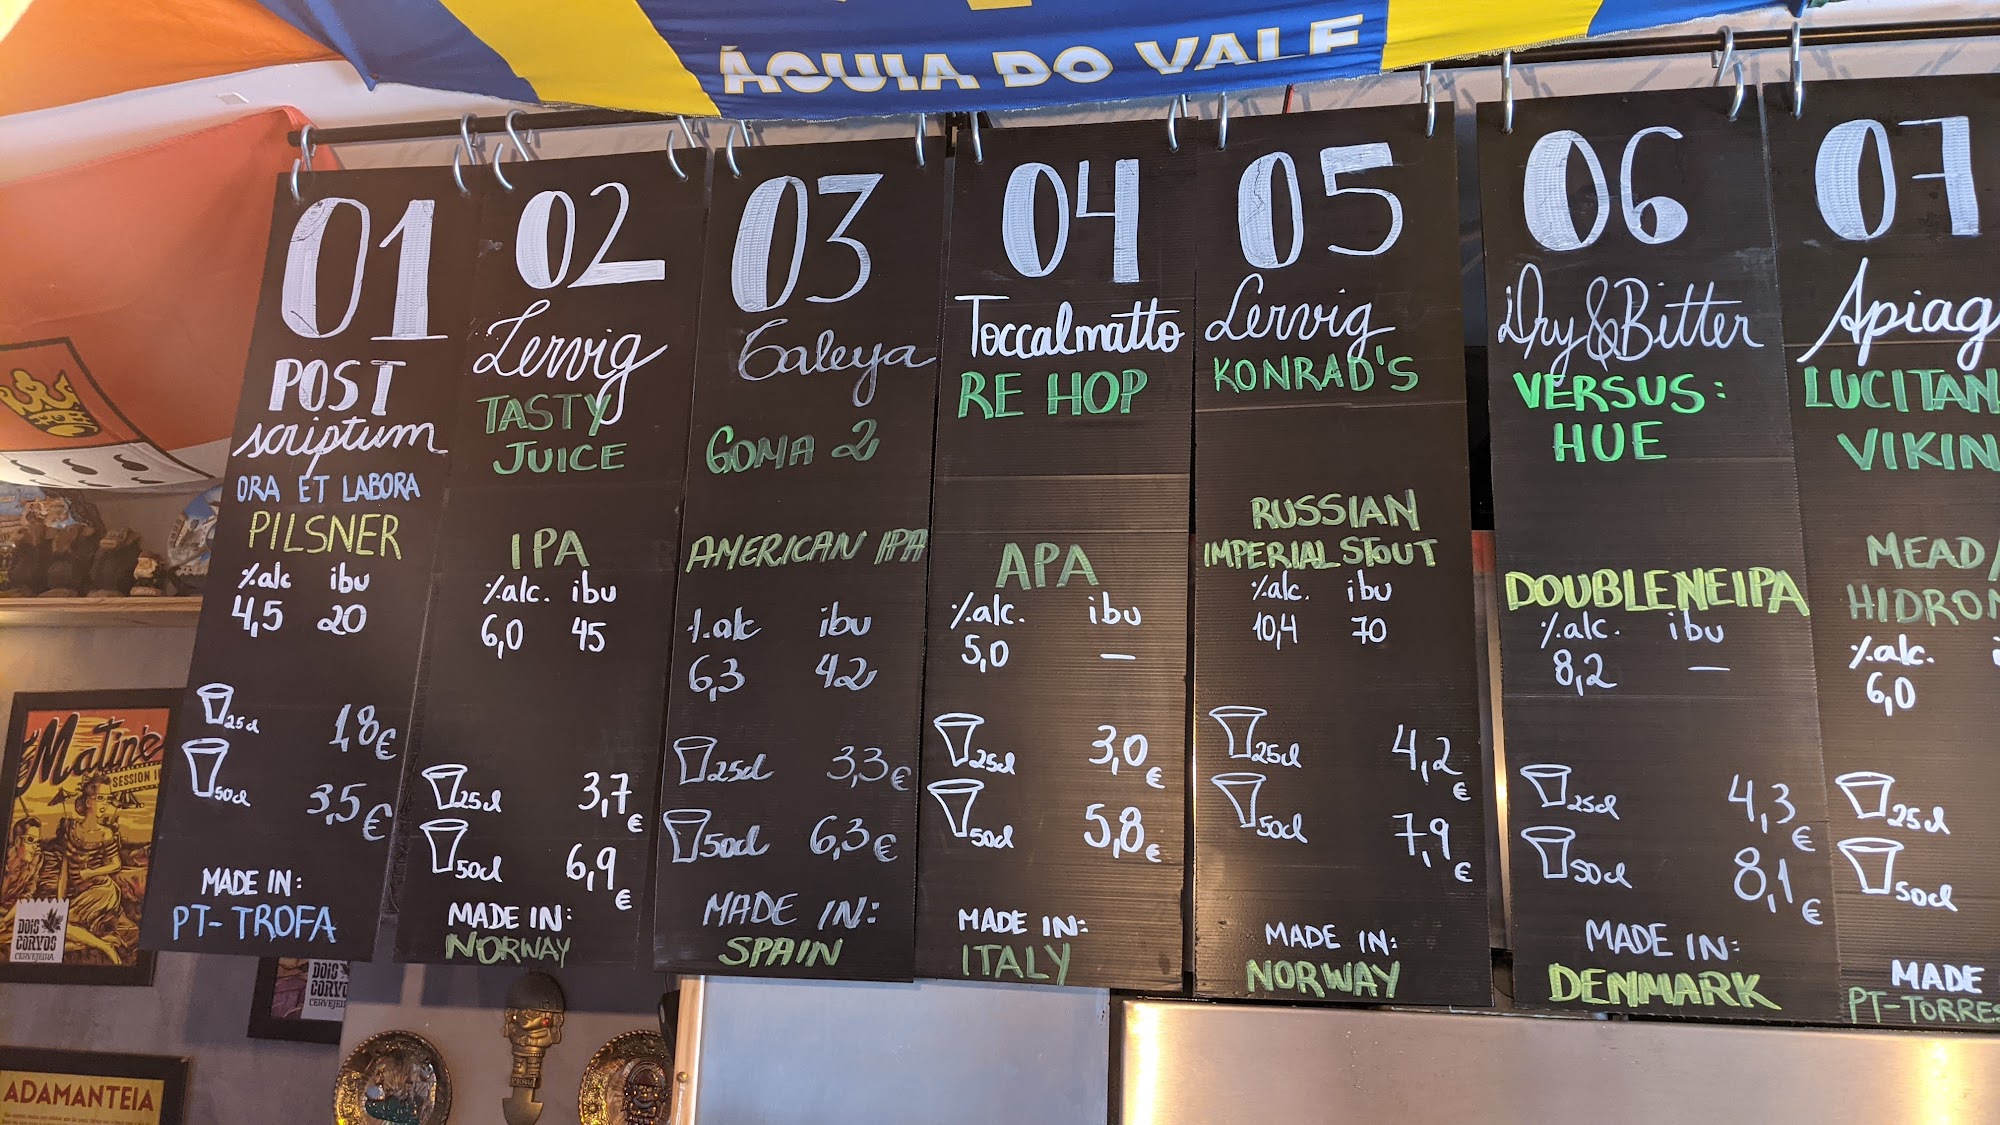 ÁGUIA DO VALE
01
POST
scriptum
ORA ET LABORA
PILSNER
%alc ibu
4,5 20
25cl 1,8€
50cl 3,5€
MADE IN:
PT-TROFA
02
Lervig
TASTY
JUICE
IPA
%alc. ibu
6,0 45
25cl 3,7€
50cl 6,9€
MADE IN:
NORWAY
03
Galeya
GOMA 2
AMERICAN IPA
%alc ibu
6,3 42
25cl 3,3€
50cl 6,3€
MADE IN:
SPAIN
04
Toccalmatto
RE HOP
APA
%alc. ibu
5,0 —
25cl 3,0€
50cl 5,8€
MADE IN:
ITALY
05
Lervig
KONRAD'S
RUSSIAN
IMPERIAL STOUT
%alc. ibu
10,4 70
25cl 4,2€
50cl 7,9€
MADE IN:
NORWAY
06
Dry&Bitter
VERSUS:
HUE
DOUBLENEIPA
%alc. ibu
8,2 —
25cl 4,3€
50cl 8,1€
MADE IN:
DENMARK
07
Apiag
LUCITAN
VIKIN
MEAD/
HIDROM
%alc.
6,0
25cl
50cl
MADE
PT-TORRES
Matiné
SESSION
DOIS
CORVOS
CERVEJEIRA
DOIS
CORVO
CERVEJEI
ADAMANTEIA
PERU